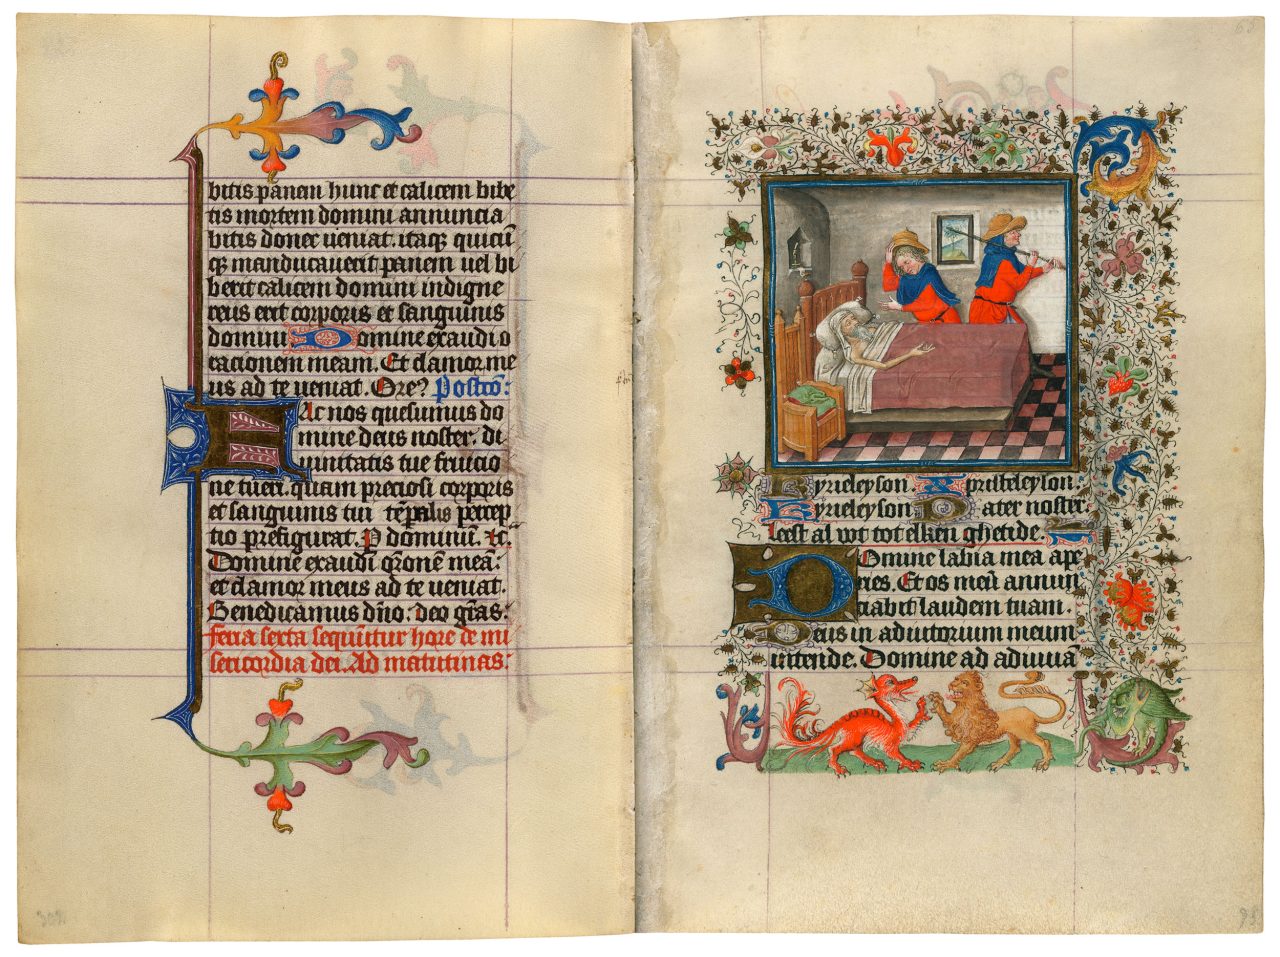 bitis panem hunc et calicem bibe
tis mortem domini annuncia
bitis donec veniat. itaqꝫ quicū
qꝫ manducauerit panem vel bi
berit calicem domini indigne
reus erit corporis et sanguinis
domini Domine exaudi o
racionem meam. Et clamor me
us ad te veniat. Ore? Postcō:
FAc nos quesumus do
mine deus noster. di
uinitatis tue fruicio
ne tueri. quam preciosi corporis
et sanguinis tui tēpalis percep
tio prefigurat. P dominū. &c.
Domine exaudi oronē meā:
et clamor meus ad te veniat.
Benedicamus dno: deo gr̄as:
Feria sexta sequūtur hore de mi
sericordia dei. Ad matutinas:
Kyrieleyson. Xpristeleyson:
Kyrieleyson Pater noster.
Leest al wt tot elken ghetide.
DOmine labia mea ape
ries. Et os meū annun
ciabit laudem tuam.
Deus in adiutorium meum
intende. Domine ad adiuuā
95